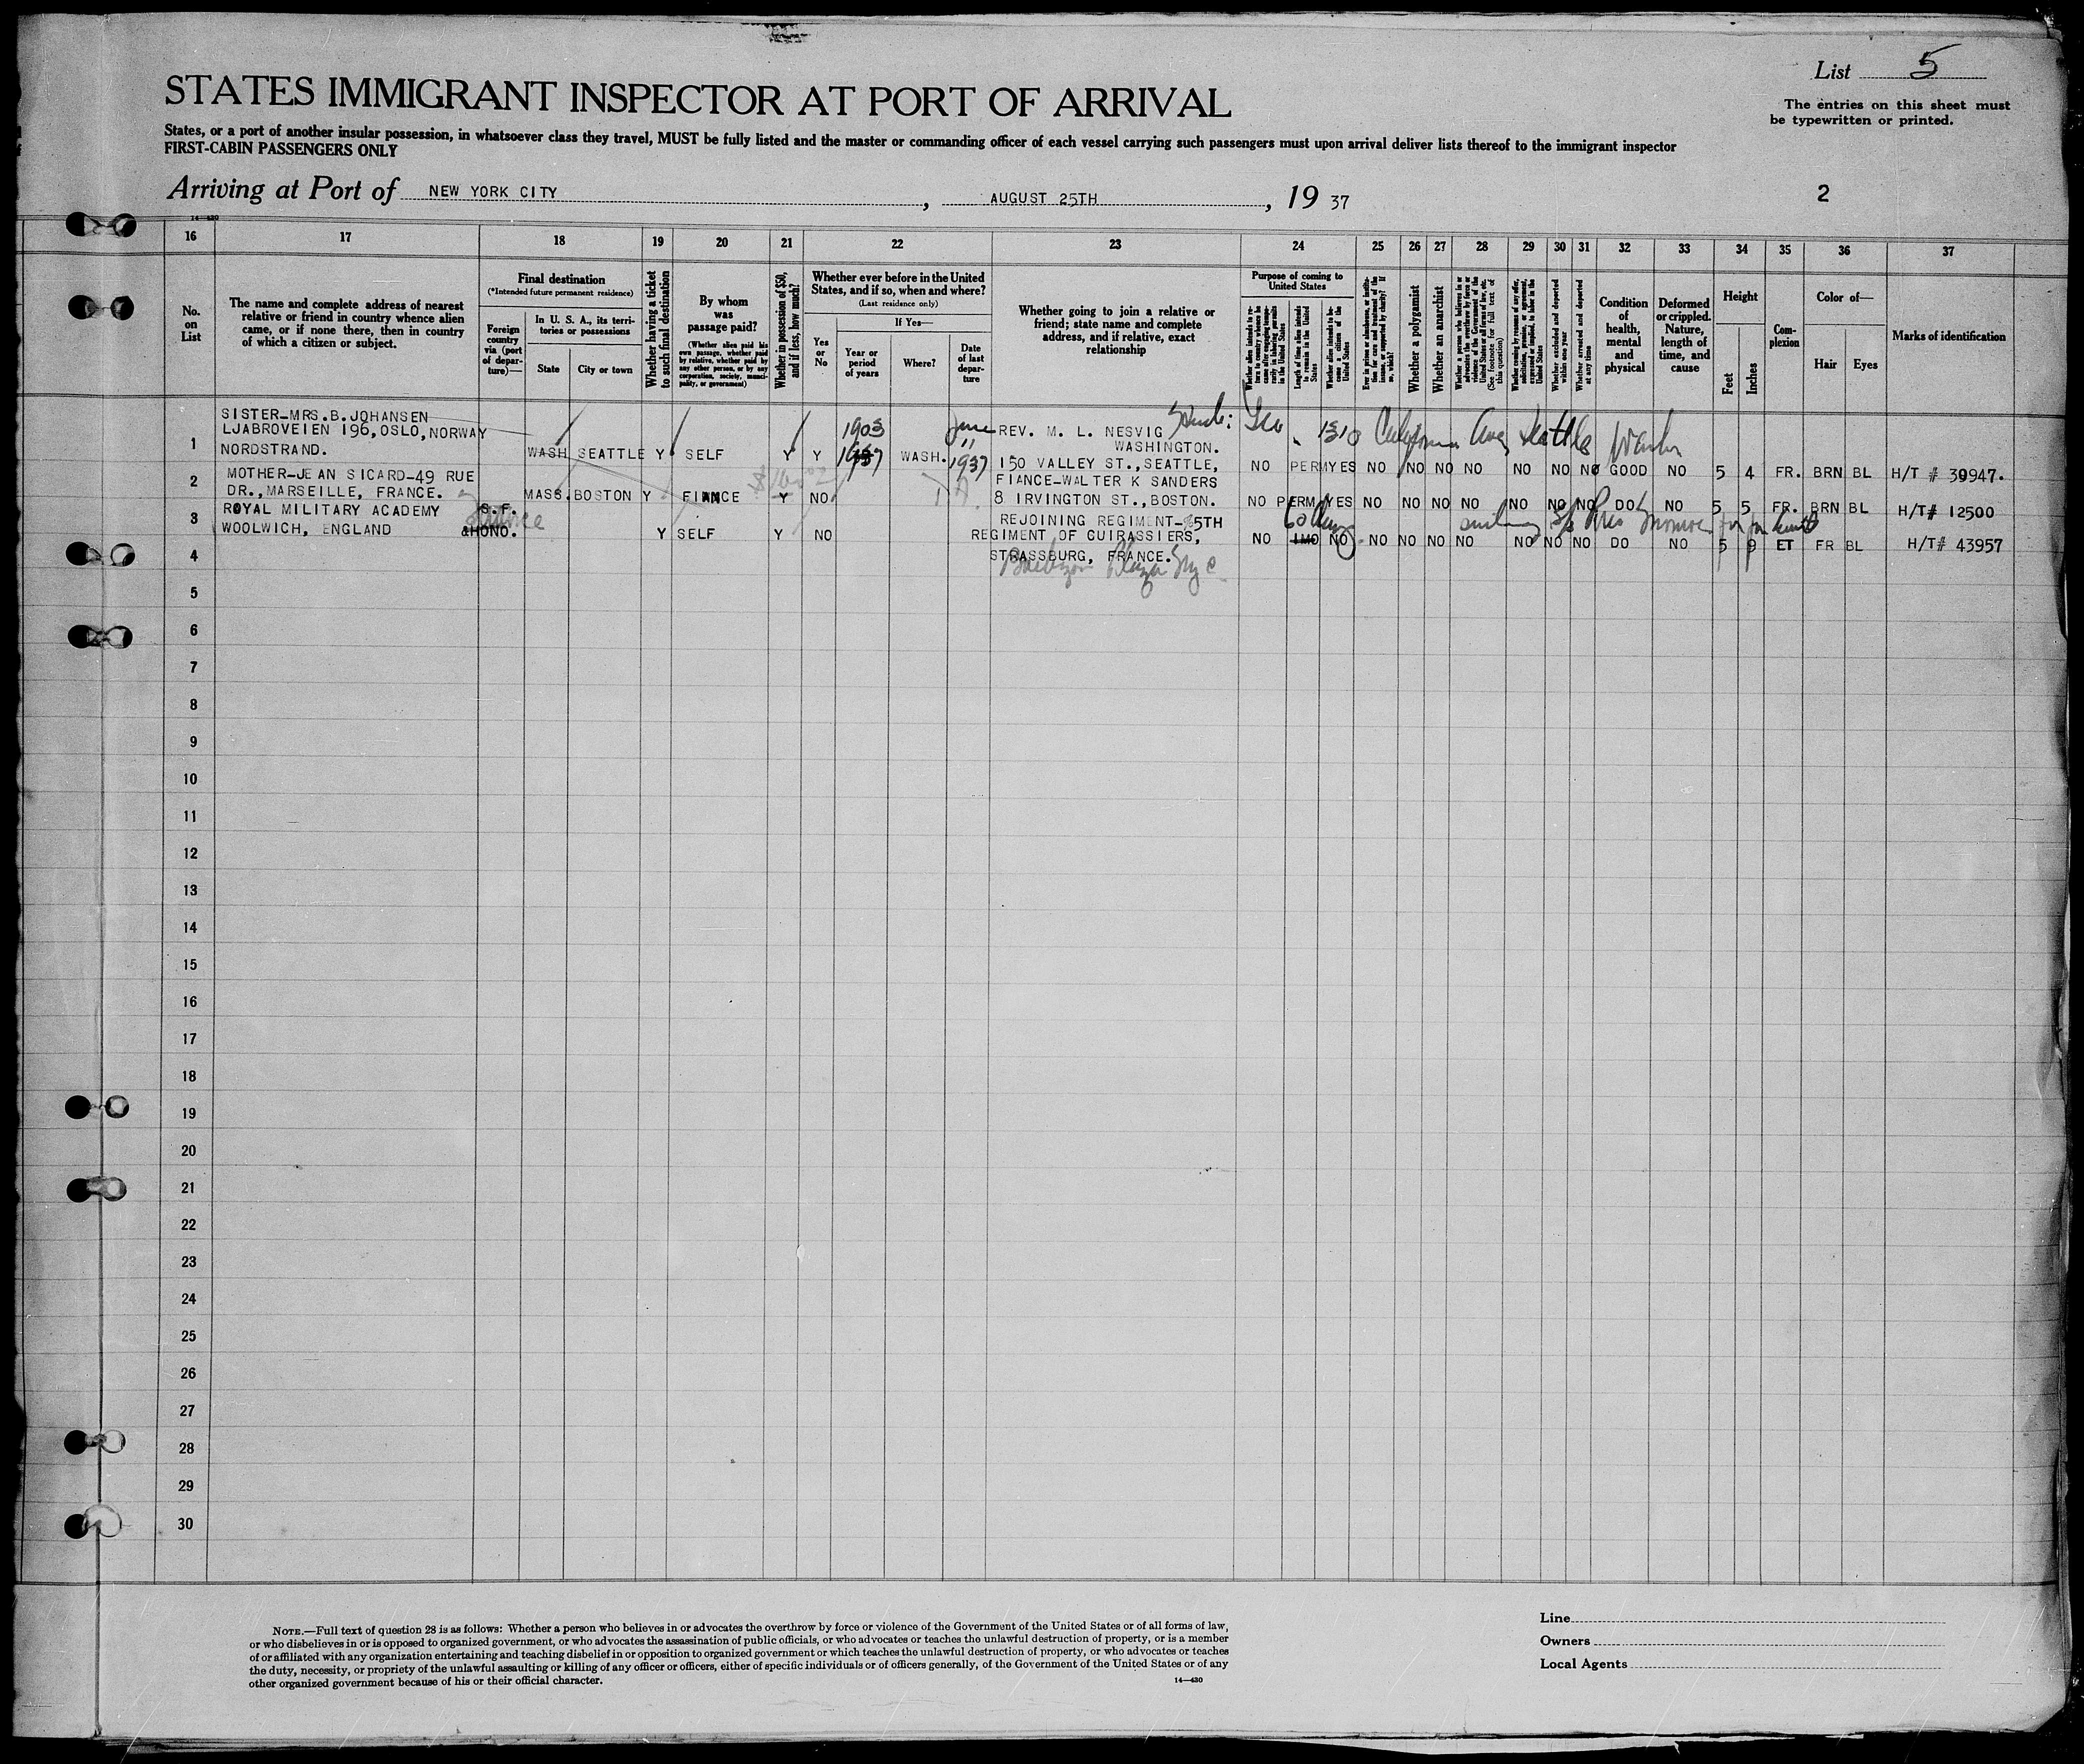 List 5
STATES IMMIGRANT INSPECTOR AT PORT OF ARRIVAL
The entries on this sheet must
be typewritten or printed.
States, or a port of another insular possession, in whatsoever class they travel, MUST be fully listed and the master or commanding officer of each vessel carrying such passengers must upon arrival deliver lists thereof to the immigrant inspector
FIRST-CABIN PASSENGERS ONLY
Arriving at Port of NEW YORK CITY, AUGUST 25TH, 19 37
2
14-430
16 17 18 19 20 21 22 23 24 25 26 27 28 29 30 31 32 33 34 35 36 37
No.
on
List
The name and complete address of nearest
relative or friend in country whence alien
came, or if none there, then in country
of which a citizen or subject.
Final destination
(*Intended future permanent residence)
Foreign
country
via (port
of depar-
ture)—
In U. S. A., its terri-
tories or possessions
State
City or town
Whether having a ticket
to such final destination
By whom
was
passage paid?
(Whether alien paid his
own passage, whether paid
by relative, whether paid by
any other person, or by any
corporation, society, munici-
pality, or government)
Whether in possession of $50,
and if less, how much?
Whether ever before in the United
States, and if so, when and where?
(Last residence only)
Yes
or
No
If Yes—
Year or
period
of years
Where?
Date
of last
depar-
ture
Whether going to join a relative or
friend; state name and complete
address, and if relative, exact
relationship
Purpose of coming to
United States
Length of time alien intends
to remain in the United
States
Whether alien intends to be-
come a citizen of the
United States
Whether a polygamist
Whether an anarchist
Whether excluded and deported
within one year
Whether arrested and deported
at any time
Condition
of
health,
mental
and
physical
Deformed
or crippled.
Nature,
length of
time, and
cause
Height
Feet
Inches
Com-
plexion
Color of—
Hair
Eyes
Marks of identification
1
SISTER-MRS.B.JOHANSEN
LJABROVEIEN 196,OSLO,NORWAY
NORDSTRAND.
WASH SEATTLE Y SELF Y Y 1903 1937 WASH. June 11 1937
REV. M. L. NESVIG
WASHINGTON.
150 VALLEY ST.,SEATTLE,
1310 California Ave Seattle Wash
NO PERM YES NO NO NO NO NO NO NO GOOD NO 5 4 FR. BRN BL H/T # 39947.
2
MOTHER-JEAN SICARD-49 RUE
DR.,MARSEILLE, FRANCE.
MASS. BOSTON Y FIANCE Y NO
FIANCE-WALTER K SANDERS
8 IRVINGTON ST.,BOSTON.
NO PERM YES NO NO NO NO NO NO NO DO NO 5 5 FR. BRN BL H/T# 12500
3
ROYAL MILITARY ACADEMY
WOOLWICH, ENGLAND
S.F.
&HONO.
Y SELF Y NO
REJOINING REGIMENT-25TH
REGIMENT OF CUIRASSIERS,
STRASSBURG, FRANCE.
60 days
NO 1MO NO NO NO NO NO NO NO NO DO NO 5 9 ET FR BL H/T# 43957
4
Barbizon Plaza NYC
5
6
7
8
9
10
11
12
13
14
15
16
17
18
19
20
21
22
23
24
25
26
27
28
29
30
NOTE.—Full text of question 28 is as follows: Whether a person who believes in or advocates the overthrow by force or violence of the Government of the United States or of all forms of law,
or who disbelieves in or is opposed to organized government, or who advocates the assassination of public officials, or who advocates or teaches the unlawful destruction of property, or is a member
of or affiliated with any organization entertaining and teaching disbelief in or opposition to organized government or which teaches the unlawful destruction of property, or who advocates or teaches
the duty, necessity, or propriety of the unlawful assaulting or killing of any officer or officers, either of specific individuals or of officers generally, of the Government of the United States or of any
other organized government because of his or their official character.
14—430
Line
Owners
Local Agents